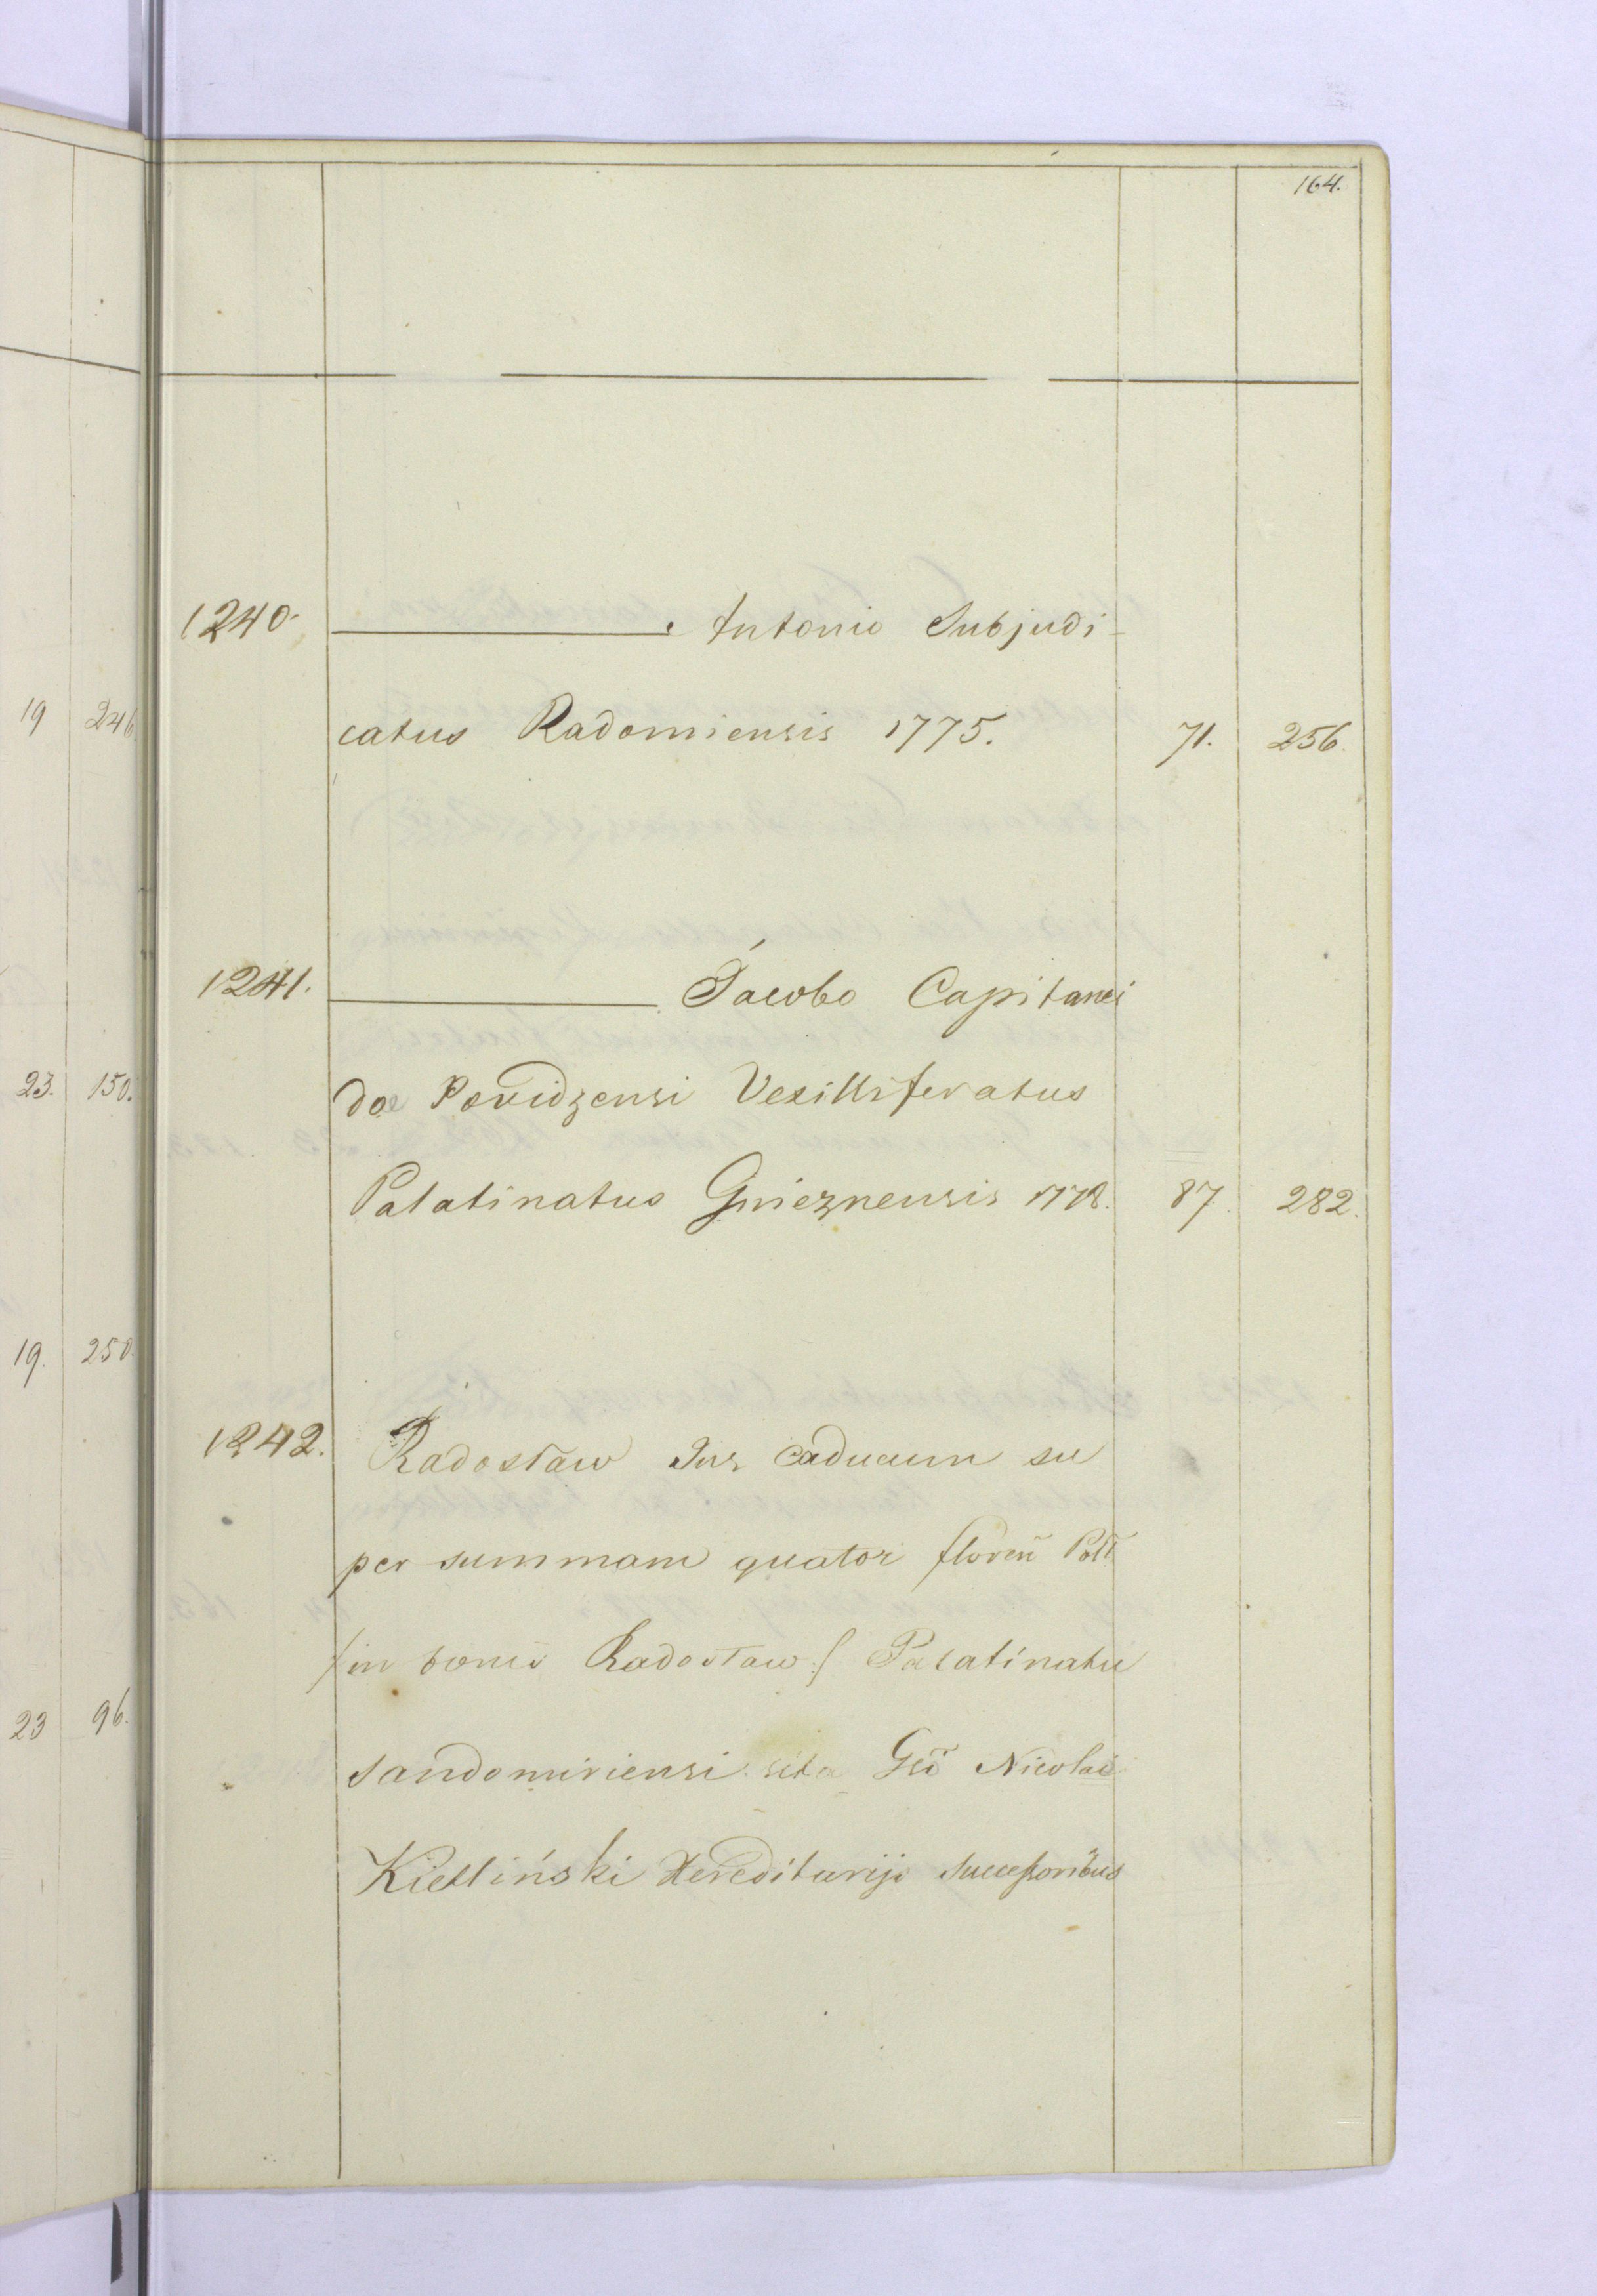 164.
1240. ——— Antonio Subjudi-
catus Radomiensis 1775. 71. 256.
1241. ——— Jacobo Capitanei
dae Powidzensi Vexilliferatus
Palatinatus Gnieznensis 1778. 87. 282.
1242. Radostaw Jus caducum su
per summam quator floreñ Poll̃
/in bonis Radostaw/ Palatinatu
Sandomiriensi sita Gsõ Nicolao
Kietliński Hereditarijs Successoribus
19 246.
23. 150.
19. 250.
23 96.